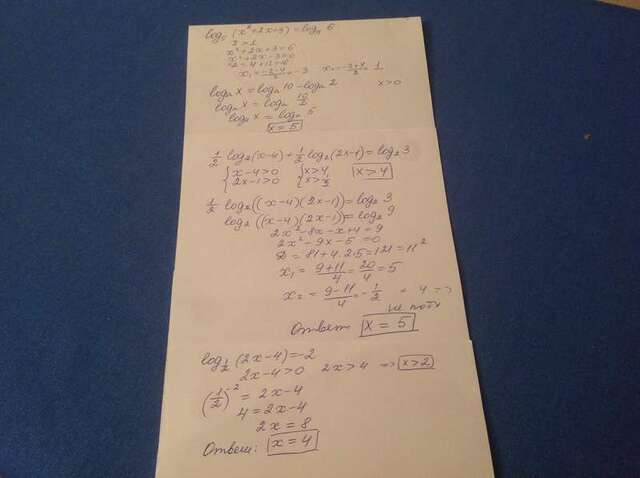 (x² + 2x + 3) = log 6
x² + 2x + 3 = 6
x² + 2x - 3 = 0
= 4 + 12 =
x₁ = = -3 x₂ = 1
log x = log 10 - log 2 x > 0
log x = log 10/2
log x = log 5
x = 5
1/2 log₂(x-4) + 1/2 log₂(2x-1) = log₂3
{ x-4>0 { x>4 x>4
2x-1>0 x>1/2
1/2 log₂((x-4)(2x-1)) = log₂3
log₂((x-4)(2x-1)) = log₂9
2x² - 8x - x + 4 = 9
2x² - 9x - 5 = 0
D = 81 + 4·2·5 = 121 = 11²
x₁ = (9+11)/4 = 20/4 = 5
x₂ = (9-11)/4 = -1/2
не
Ответ: x = 5
log₁/₂(2x-4) = -2
2x-4>0 2x>4 => x>2
(1/2)⁻² = 2x-4
4 = 2x-4
2x = 8
Ответ: x = 4